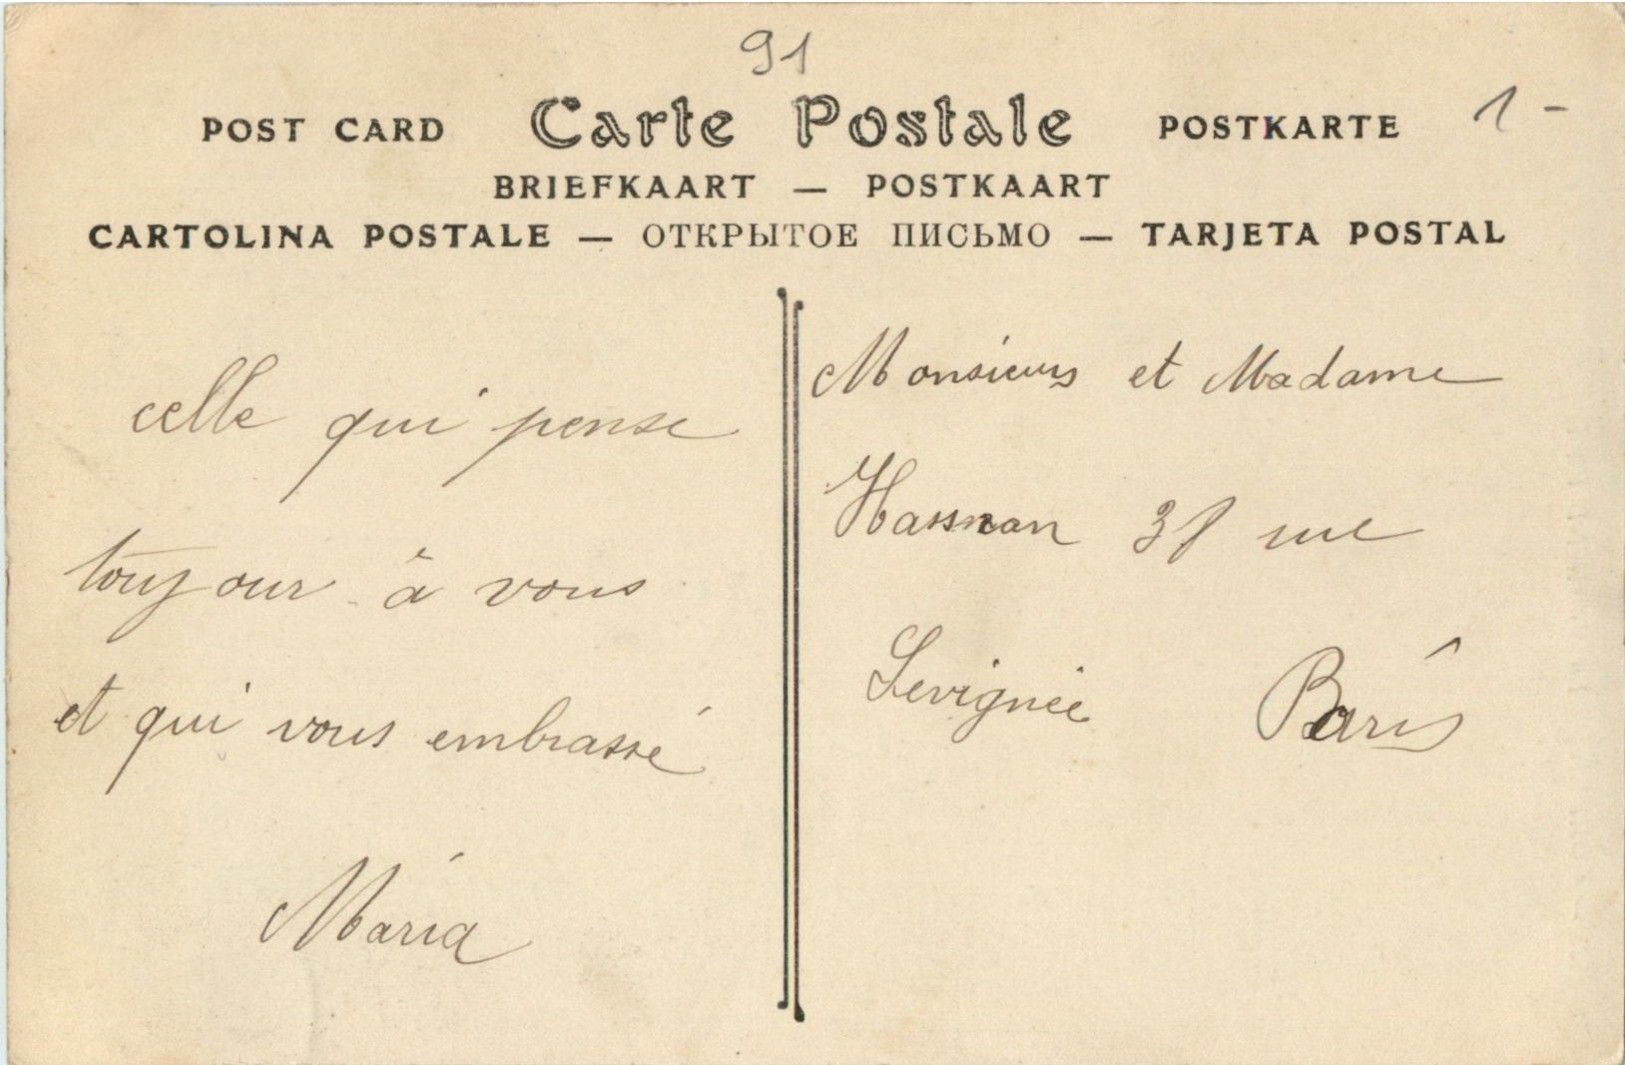 91
POST CARD Carte Postale POSTKARTE 1-
BRIEFKAART — POSTKAART
CARTOLINA POSTALE — ОТКРЫТОЕ ПИСЬМО — TARJETA POSTAL
celle qui pense
toujour à vous
et qui vous embrassé
Maria
Monsieurs et Madame
Hassnan 31 rue
Sevignée Parîs